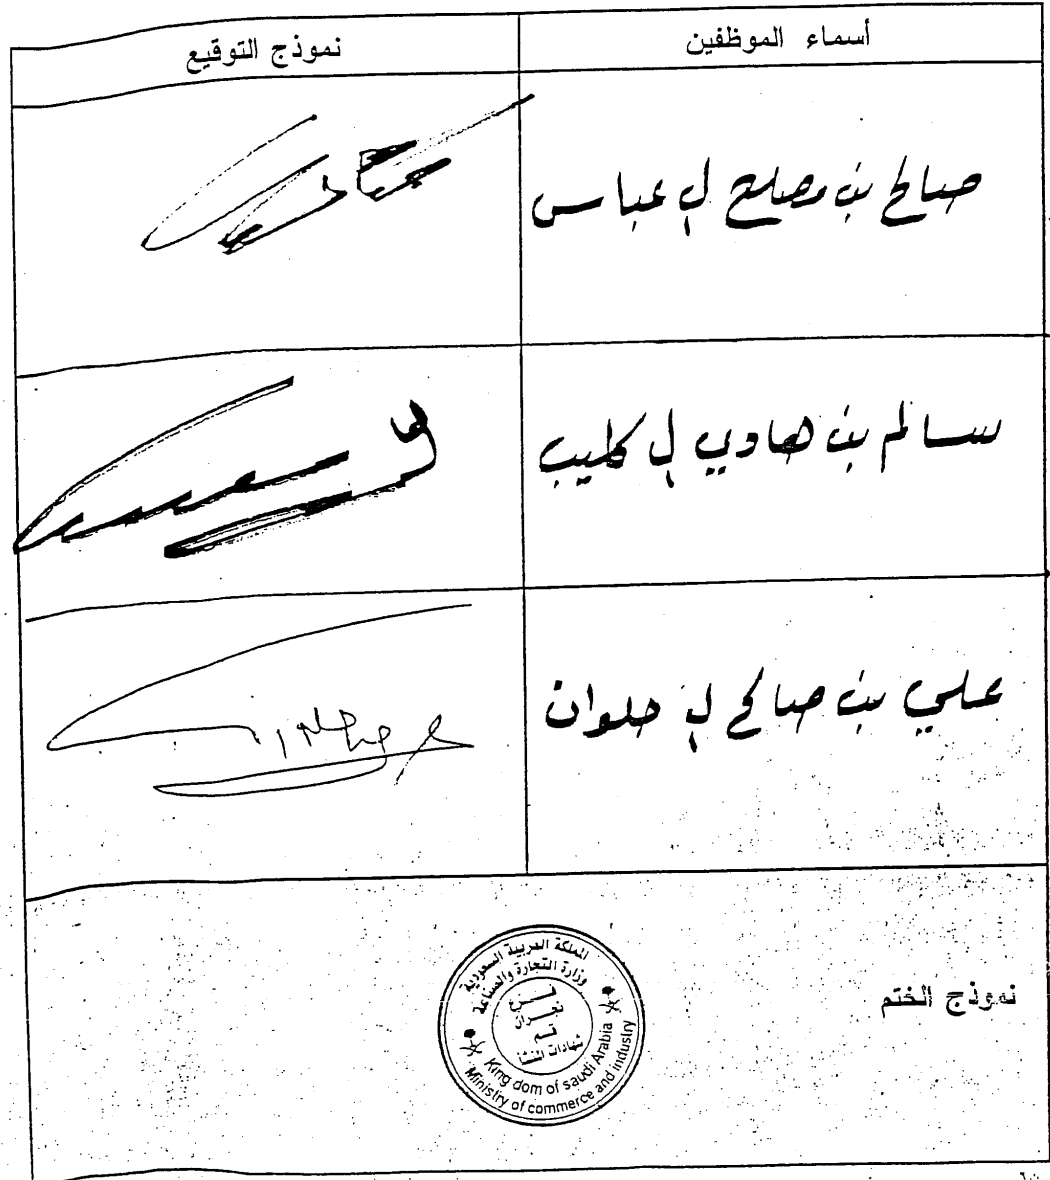 أسماء الموظفين
نموذج التوقيع
صالح بن مصلح ال عباس
سالم بن هادي ال كليب
علي بن صالح ال حلوان
نموذج الختم
المملكة العربية السعودية
وزارة التجارة والصناعة
فرع
نجران
قسم
شهادات المنشا
King dom of saudi Arabia
Ministry of commerce and industry